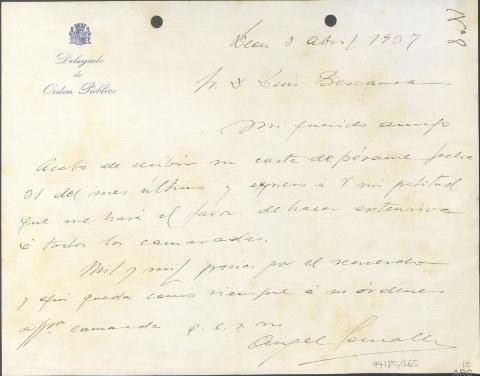 Nº 8
Delegado
de
Orden Público
Leon 3 abril 1937
Sr. D Luis
Mi querido amigo
Acabo de recibir su carta de pésame fecha
31 del mes último y expreso á V mi gratitud
que me hará el favor de hacer extensiva
á todos los camaradas.
Mil y mil gracias por el recuerdo
y aqui queda como siempre á sus órdenes
affmo camarada q. e. s. m
Angel